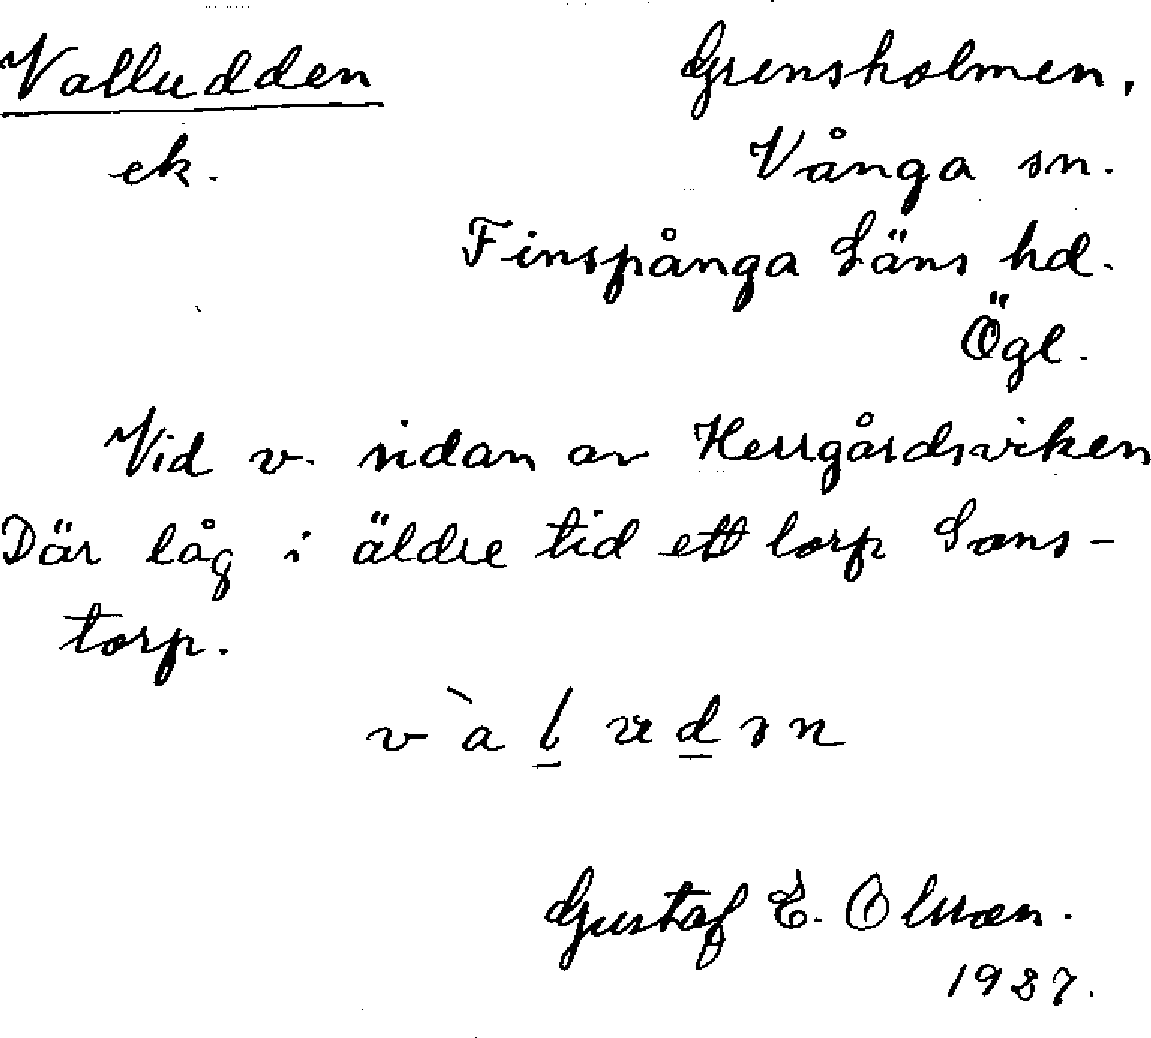 Valludden Grensholmen,
ek. Vånga sn.
Finspånga Läns hd.
Ögl.
Vid v. sidan av Herrgårdsviken
Där låg i äldre tid ett torp Sons-
torp.
Gustaf E. Olsson.